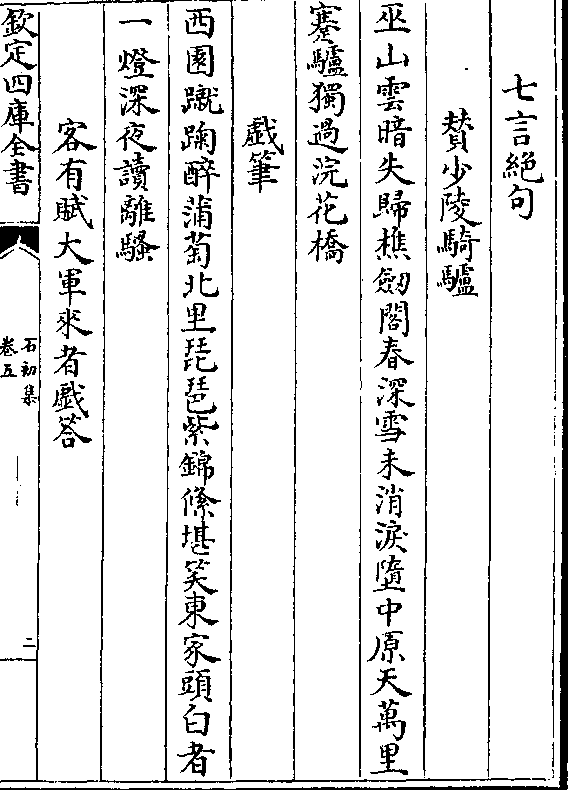 七言絶句
賛少陵騎驢
巫山雲暗失歸樵劒閣春深雪未消淚墮中原天萬里
蹇驢獨過浣花橋
戲筆
西園蹴踘醉蒲萄北里琵琶紫錦絛堪笑東家頭白者
一燈深夜讀離騷
客有賦大軍來者戲答
欽定四庫全書
石初集
卷五
二